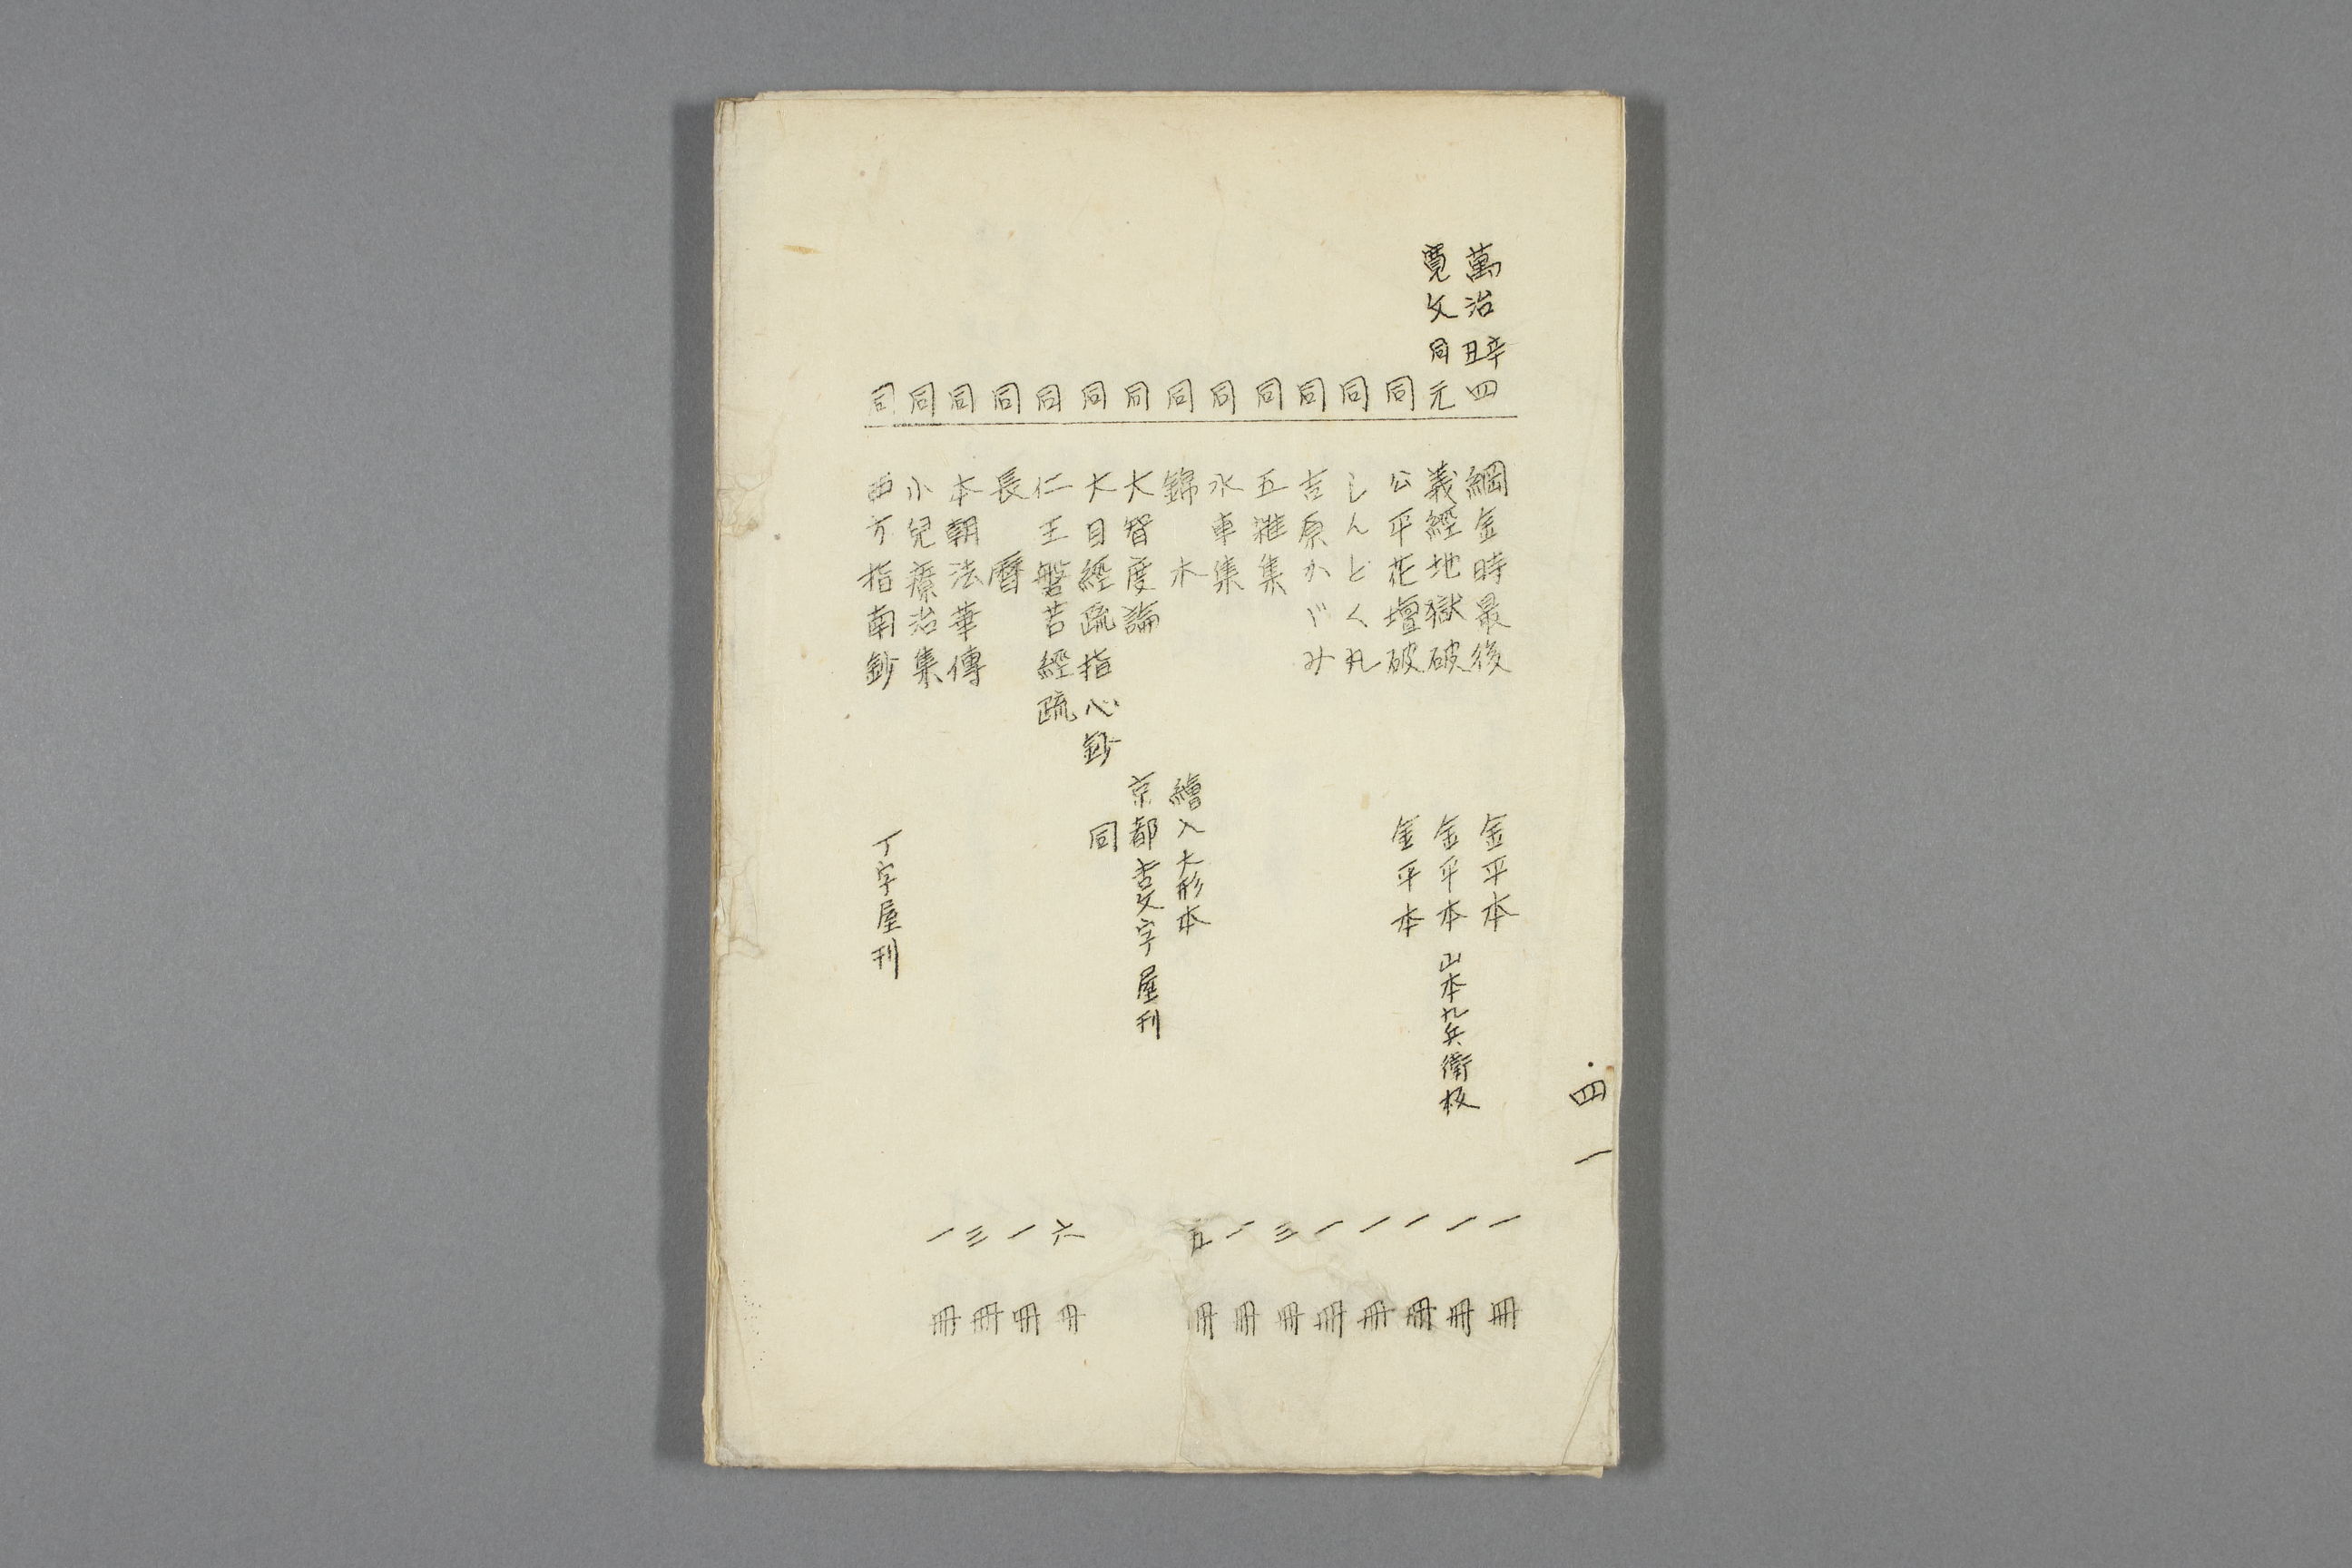 萬治辛丑四 綱金時最後 金平本 一冊
寛文同元 義經地獄破 金平本 山本九兵衛板 一冊
同 公平花壇破 金平本 一冊
同 しんどく丸 一冊
同 吉原かゞみ 一冊
同 五雑集 三冊
同 水車集 一冊
同 錦木 繪入大形本 五冊
同 大智度論 京都吉文字屋刊
同 大日經疏指心鈔 同
同 仁王磐若經疏 六冊
同 長暦 一冊
同 本朝法華傳 三冊
同 小兒療治集 一冊
同 西方指南鈔 丁字屋刊
四一